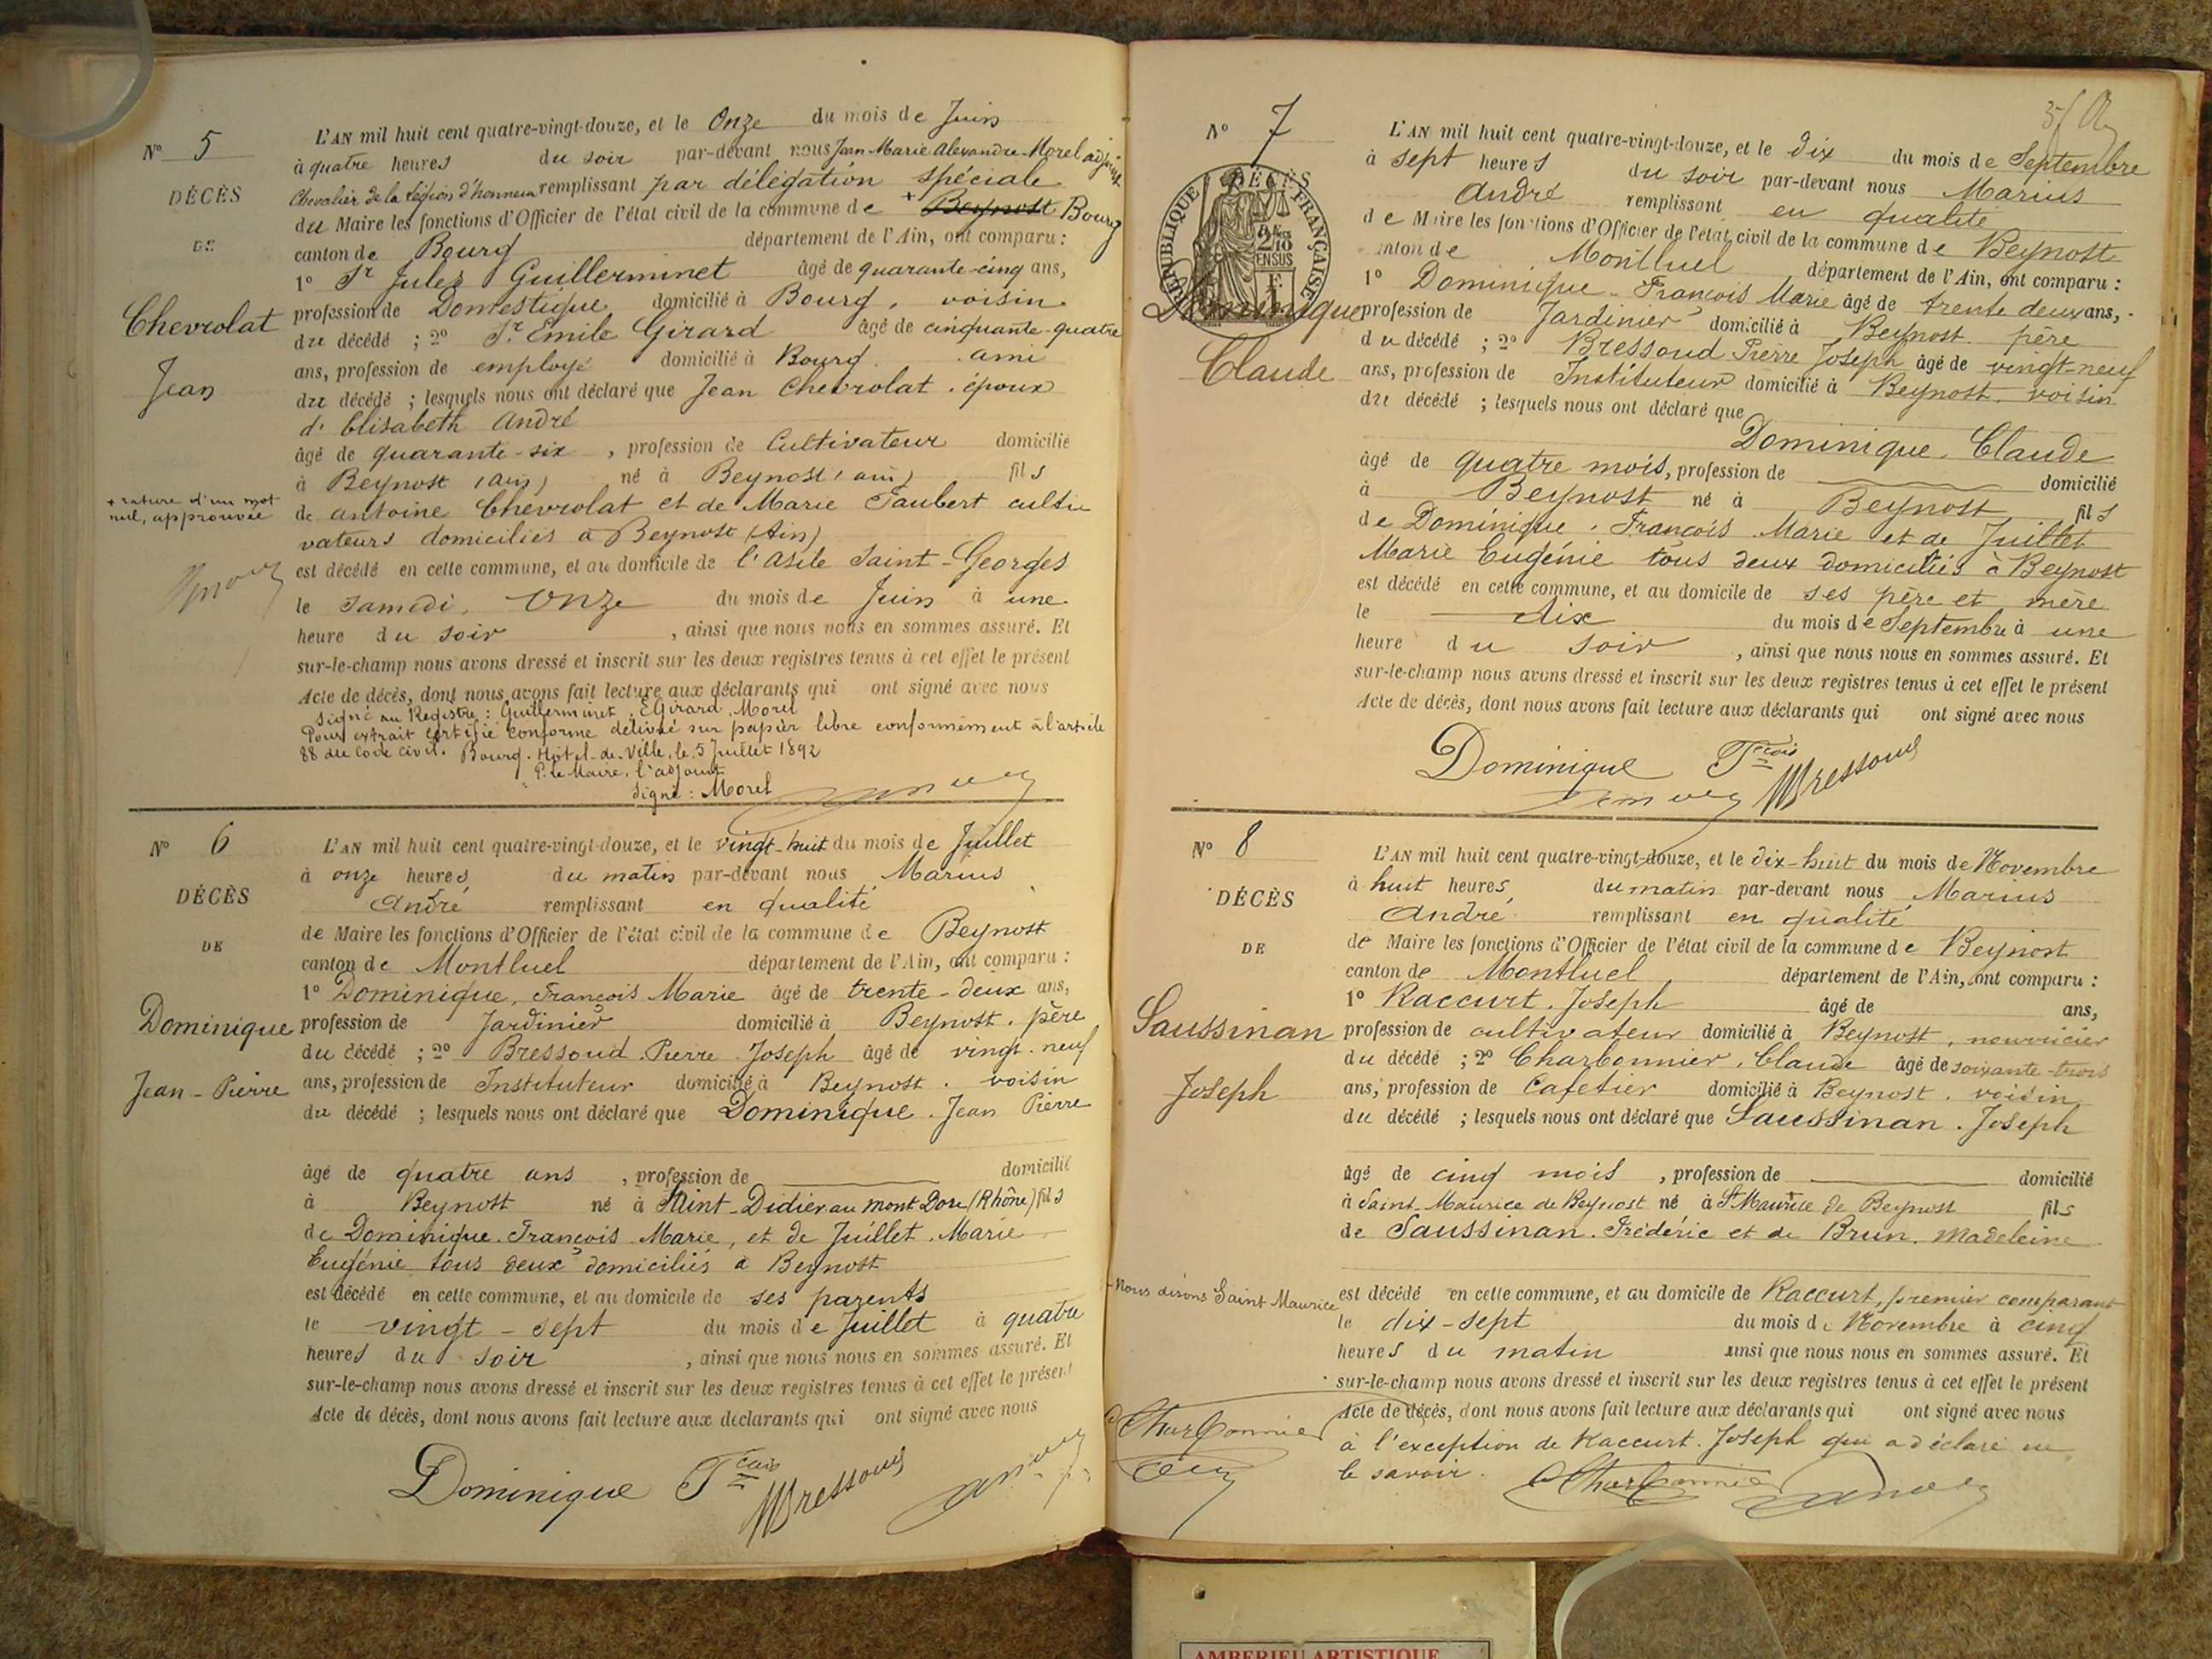 N° 5
DÉCÈS
DE
Chevrolat
Jean
+ rature d'un mot
nul, approuvée
L'AN mil huit cent quatre-vingt-douze, et le Onze du mois de Juin
à quatre heures du soir par-devant nous Jean Marie Alexandre Morel adjoint
Chevalier de la Légion d'honneur remplissant par délégation spéciale
du Maire les fonctions d'Officier de l'état civil de la commune de + Beynost Bourg
canton de Bourg département de l'Ain, ont comparu :
1° Sr Jules Guillerminet âgé de quarante-cinq ans,
profession de Domestique domicilié à Bourg, voisin
du décédé ; 2° Sr Emile Girard âgé de cinquante-quatre
ans, profession de employé domicilié à Bourg. ami
du décédé ; lesquels nous ont déclaré que Jean Chevrolat. époux
d'Elisabeth André
âgé de quarante-six , profession de Cultivateur domicilié
à Beynost (Ain) né à Beynost (Ain) fils
de Antoine Chevrolat et de Marie Jaubert culti
vateurs domiciliés à Beynost (Ain)
est décédé en cette commune, et au domicile de l'Asile Saint-Georges
le Samedi, Onze du mois de Juin à une
heure du soir , ainsi que nous nous en sommes assuré. Et
sur-le-champ nous avons dressé et inscrit sur les deux registres tenus à cet effet le présent
Acte de décès, dont nous avons fait lecture aux déclarants qui ont signé avec nous
Signé au Registre : Guillerminet, E Girard, Morel
Pour extrait certifié conforme délivré sur papier libre conformément à l'article
88 du Code Civil. Bourg. Hôtel-de-Ville, le 5 Juillet 1892
P. le Maire, l'adjoint
Signé : Morel
N° 6
DÉCÈS
DE
Dominique
Jean-Pierre
L'AN mil huit cent quatre-vingt-douze, et le vingt-huit du mois de Juillet
à onze heures du matin par-devant nous Marius
André remplissant en qualité
de Maire les fonctions d'Officier de l'état civil de la commune de Beynost
canton de Montluel département de l'Ain, ont comparu :
1° Dominique, François Marie âgé de trente-deux ans,
profession de Jardinier domicilié à Beynost. père
du décédé ; 2° Bressoud Pierre Joseph âgé de vingt-neuf
ans, profession de Instituteur domicilié à Beynost. voisin
du décédé ; lesquels nous ont déclaré que Dominique. Jean Pierre
âgé de quatre ans , profession de domicilié
à Beynost né à Saint-Didier au Mont Dore (Rhône) fils
de Dominique. François Marie, et de Juillet. Marie
Eugénie tous deux domiciliés à Beynost
est décédé en cette commune, et au domicile de ses parents
le vingt-sept du mois de Juillet à quatre
heures du soir , ainsi que nous nous en sommes assuré. Et
sur-le-champ nous avons dressé et inscrit sur les deux registres tenus à cet effet le présent
Acte de décès, dont nous avons fait lecture aux déclarants qui ont signé avec nous
Dominique Fçois Bressoud
N° 7
DÉCÈS
RÉPUBLIQUE FRANÇAISE
2/10 EN SUS
Dominique
Claude
L'AN mil huit cent quatre-vingt-douze, et le dix du mois de Septembre
à sept heures du soir par-devant nous Marius
André remplissant en qualité
de Maire les fonctions d'Officier de l'état civil de la commune de Beynost
anton de Montluel département de l'Ain, ont comparu :
1° Dominique. François Marie âgé de trente deux ans,
profession de Jardinier domicilié à Beynost père
du décédé ; 2° Bressoud Pierre Joseph âgé de vingt-neuf
ans, profession de Instituteur domicilié à Beynost. voisin
du décédé ; lesquels nous ont déclaré que
Dominique. Claude
âgé de quatre mois, profession de domicilié
à Beynost né à Beynost fils
de Dominique. François Marie et de Juillet
Marie Eugénie tous deux domiciliés à Beynost
est décédé en cette commune, et au domicile de ses père et mère
le dix du mois de Septembre à une
heure du soir , ainsi que nous nous en sommes assuré. Et
sur-le-champ nous avons dressé et inscrit sur les deux registres tenus à cet effet le présent
Acte de décès, dont nous avons fait lecture aux déclarants qui ont signé avec nous
Dominique Fçois Bressoud
N° 8
DÉCÈS
DE
Saussinan
Joseph
Nous disons Saint Maurice
L'AN mil huit cent quatre-vingt-douze, et le dix-huit du mois de Novembre
à huit heures du matin par-devant nous Marius
André remplissant en qualité
de Maire les fonctions d'Officier de l'état civil de la commune de Beynost
canton de Montluel département de l'Ain, ont comparu :
1° Raccurt. Joseph âgé de ans,
profession de cultivateur domicilié à Beynost, nourricier
du décédé ; 2° Charbonnier. Claude âgé de soixante-trois
ans, profession de Cafetier domicilié à Beynost. voisin
du décédé ; lesquels nous ont déclaré que Saussinan. Joseph
âgé de cinq mois , profession de domicilié
à Saint-Maurice de Beynost né à St Maurice de Beynost fils
de Saussinan. Frédéric et de Brun. Madeleine
est décédé en cette commune, et au domicile de Raccurt, premier comparant
le dix-sept du mois de Novembre à cinq
heures du matin ainsi que nous nous en sommes assuré. Et
sur-le-champ nous avons dressé et inscrit sur les deux registres tenus à cet effet le présent
Acte de décès, dont nous avons fait lecture aux déclarants qui ont signé avec nous
à l'exception de Raccurt. Joseph qui a déclaré ne
le savoir.
C Charbonnier
C Charbonnier
AMBERIEU ARTISTIQUE